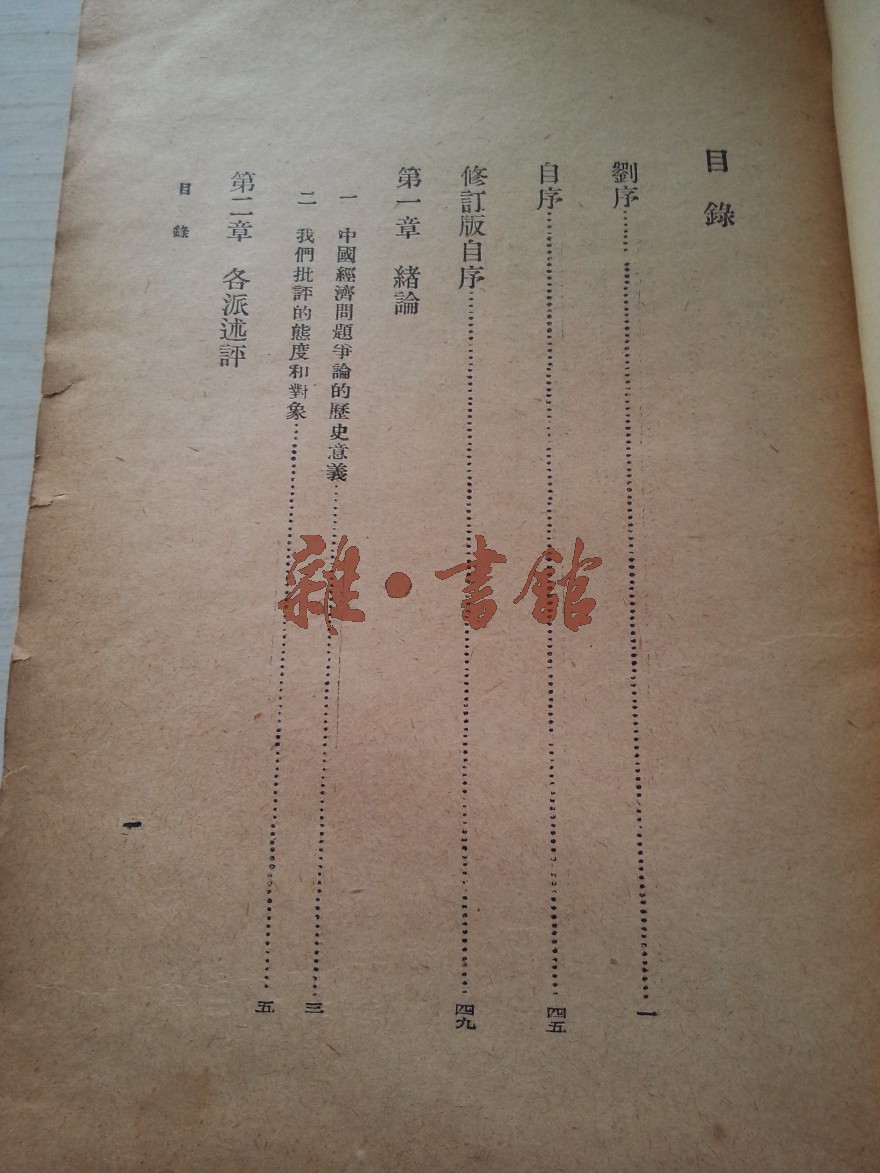 目錄
劉序…………一
自序…………四五
修訂版自序…………四九
第一章 緒論
一 中國經濟問題爭論的歷史意義…………三
二 我們批評的態度和對象…………五
第二章 各派述評
目錄
一
雜·書館